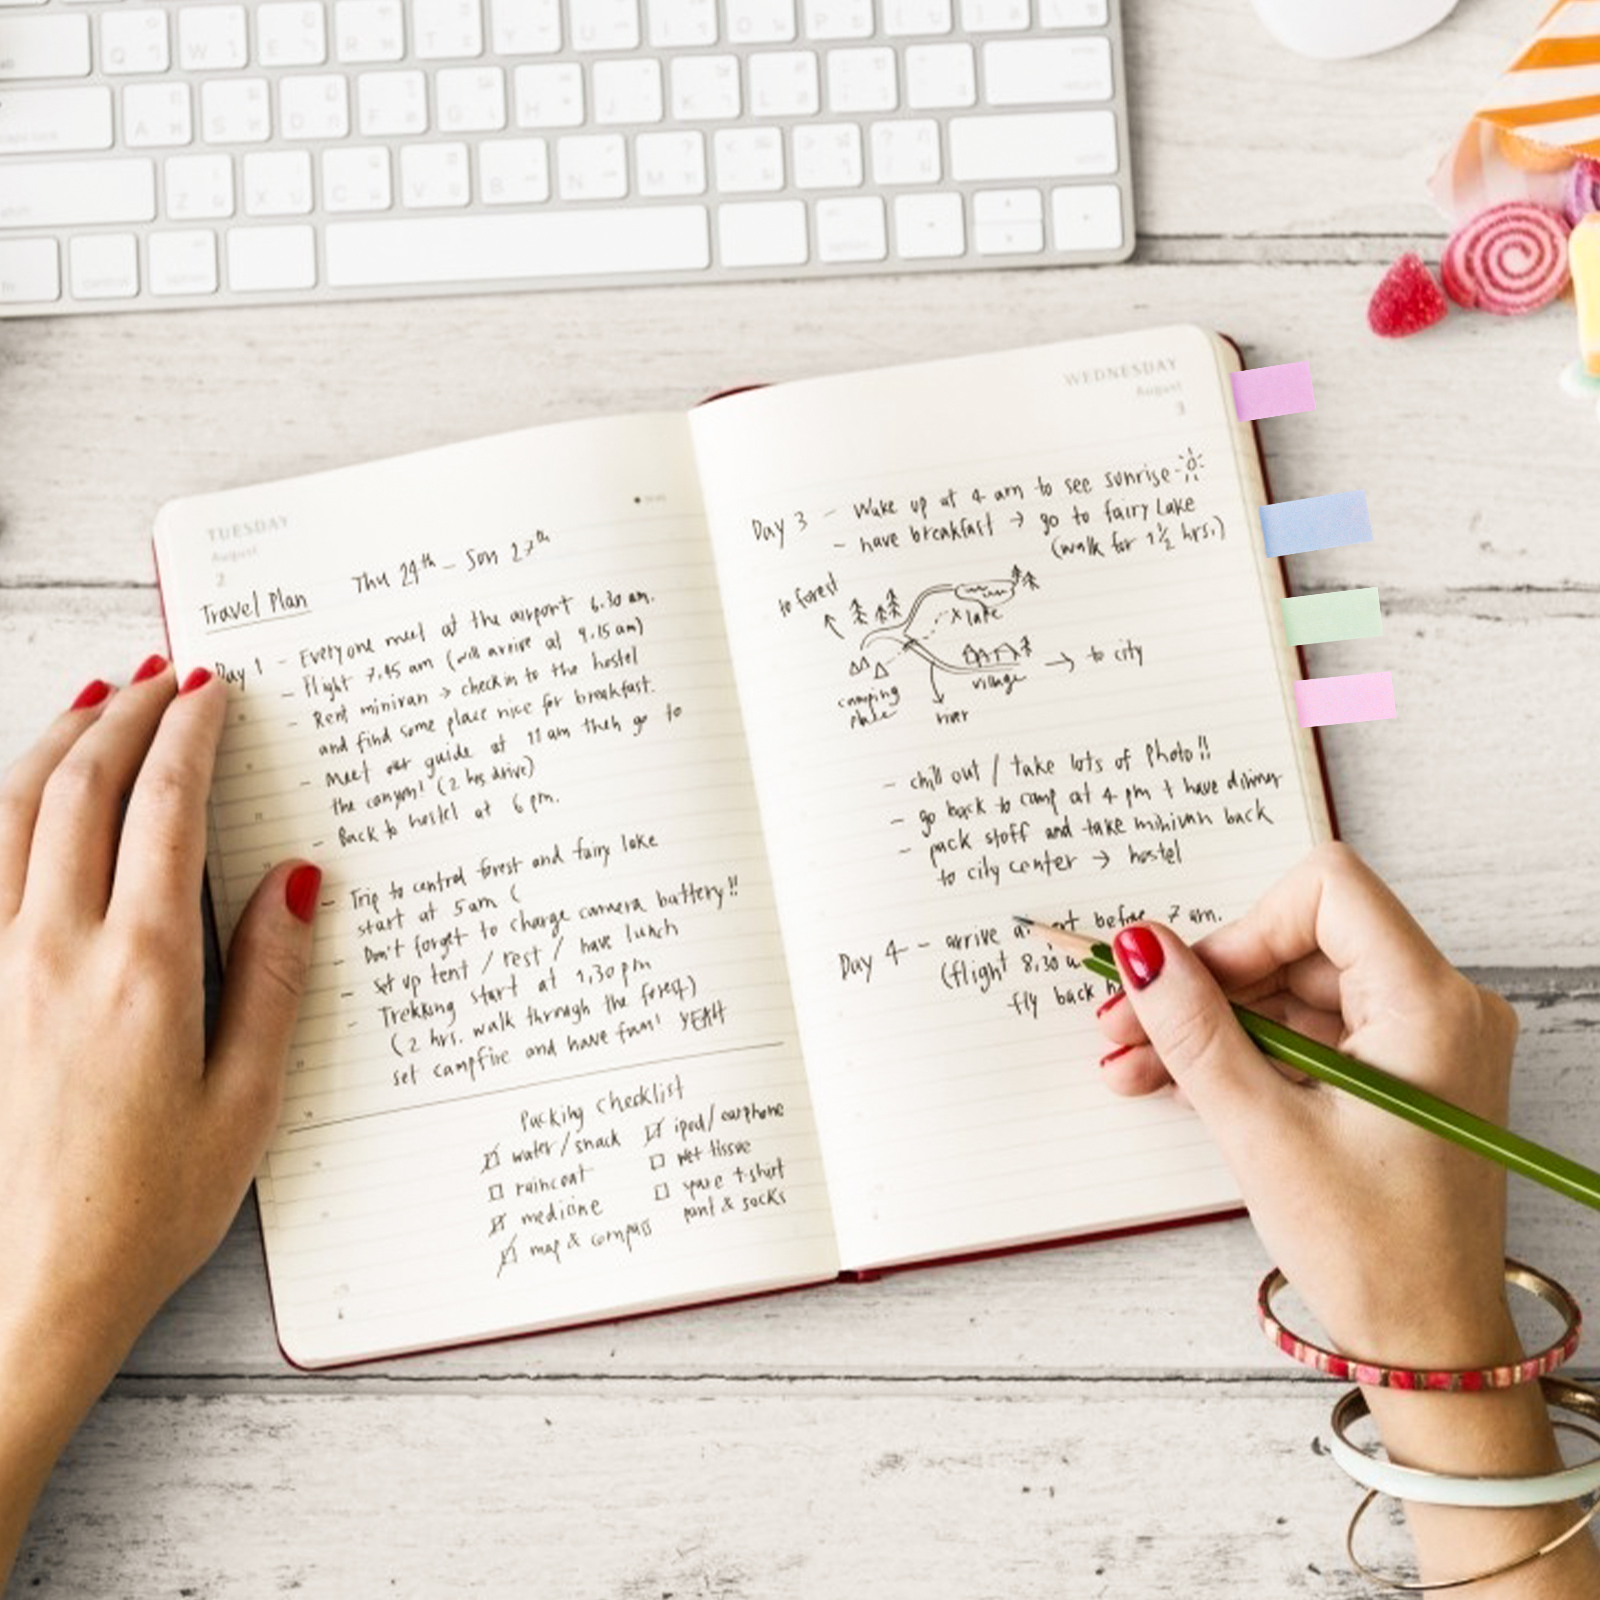 TUESDAY
August
2
Travel Plan
Thu 24th - Sun 27th
Day 1 - Everyone meet at the airport 6.30 am.
- Flight 7.45 am (will arrive at 9.15 am)
- Rent minivan → check in to the hostel
and find some place nice for breakfast.
- Meet our guide at 11 am then go to
the canyon! (2 hrs drive)
- Back to hostel at 6 pm.
- Trip to central forest and fairy lake
start at 5am (
- Don't forget to charge camera battery!!
- Set up tent / rest / have lunch
- Trekking start at 1,30 pm
(2 hrs. walk through the forest)
set campfire and have fun! YEAH
Packing checklist
water/snack
raincoat
medicine
map & compass
ipod/earphone
wet tissue
spare t-shirt
pant & socks
WEDNESDAY
August
3
Day 3 - Wake up at 4 am to see sunrise
- have breakfast → go to fairy Lake
(walk for 1½ hrs.)
to forest
x lake
to city
village
camping
place
river
- chill out / take lots of photo!!
- go back to camp at 4 pm + have dinner
- pack stuff and take minivan back
to city center → hostel
Day 4 - arrive before 7 am.
(flight 8,30
fly back
Q
W
E
R
T
Y
U
I
O
P
A
S
D
F
G
H
J
K
L
Z
X
C
V
B
N
M
fn
control
option